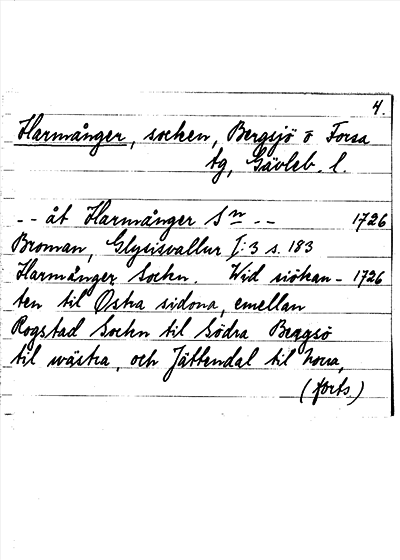 4.
Harmånger, socken, Bergsjö o Forsa
tg, Gävleb. l.
-- åt Harmånger Sn -- 1726
Broman, Glysisvallur I:3 s. 183
Harmånger Sochn. Wid siökan- 1726
ten til Østra sidona, emellan
Rogstad Sochn til Södra Berggsö
til wästra, och Jättendal til norra,
(forts.)